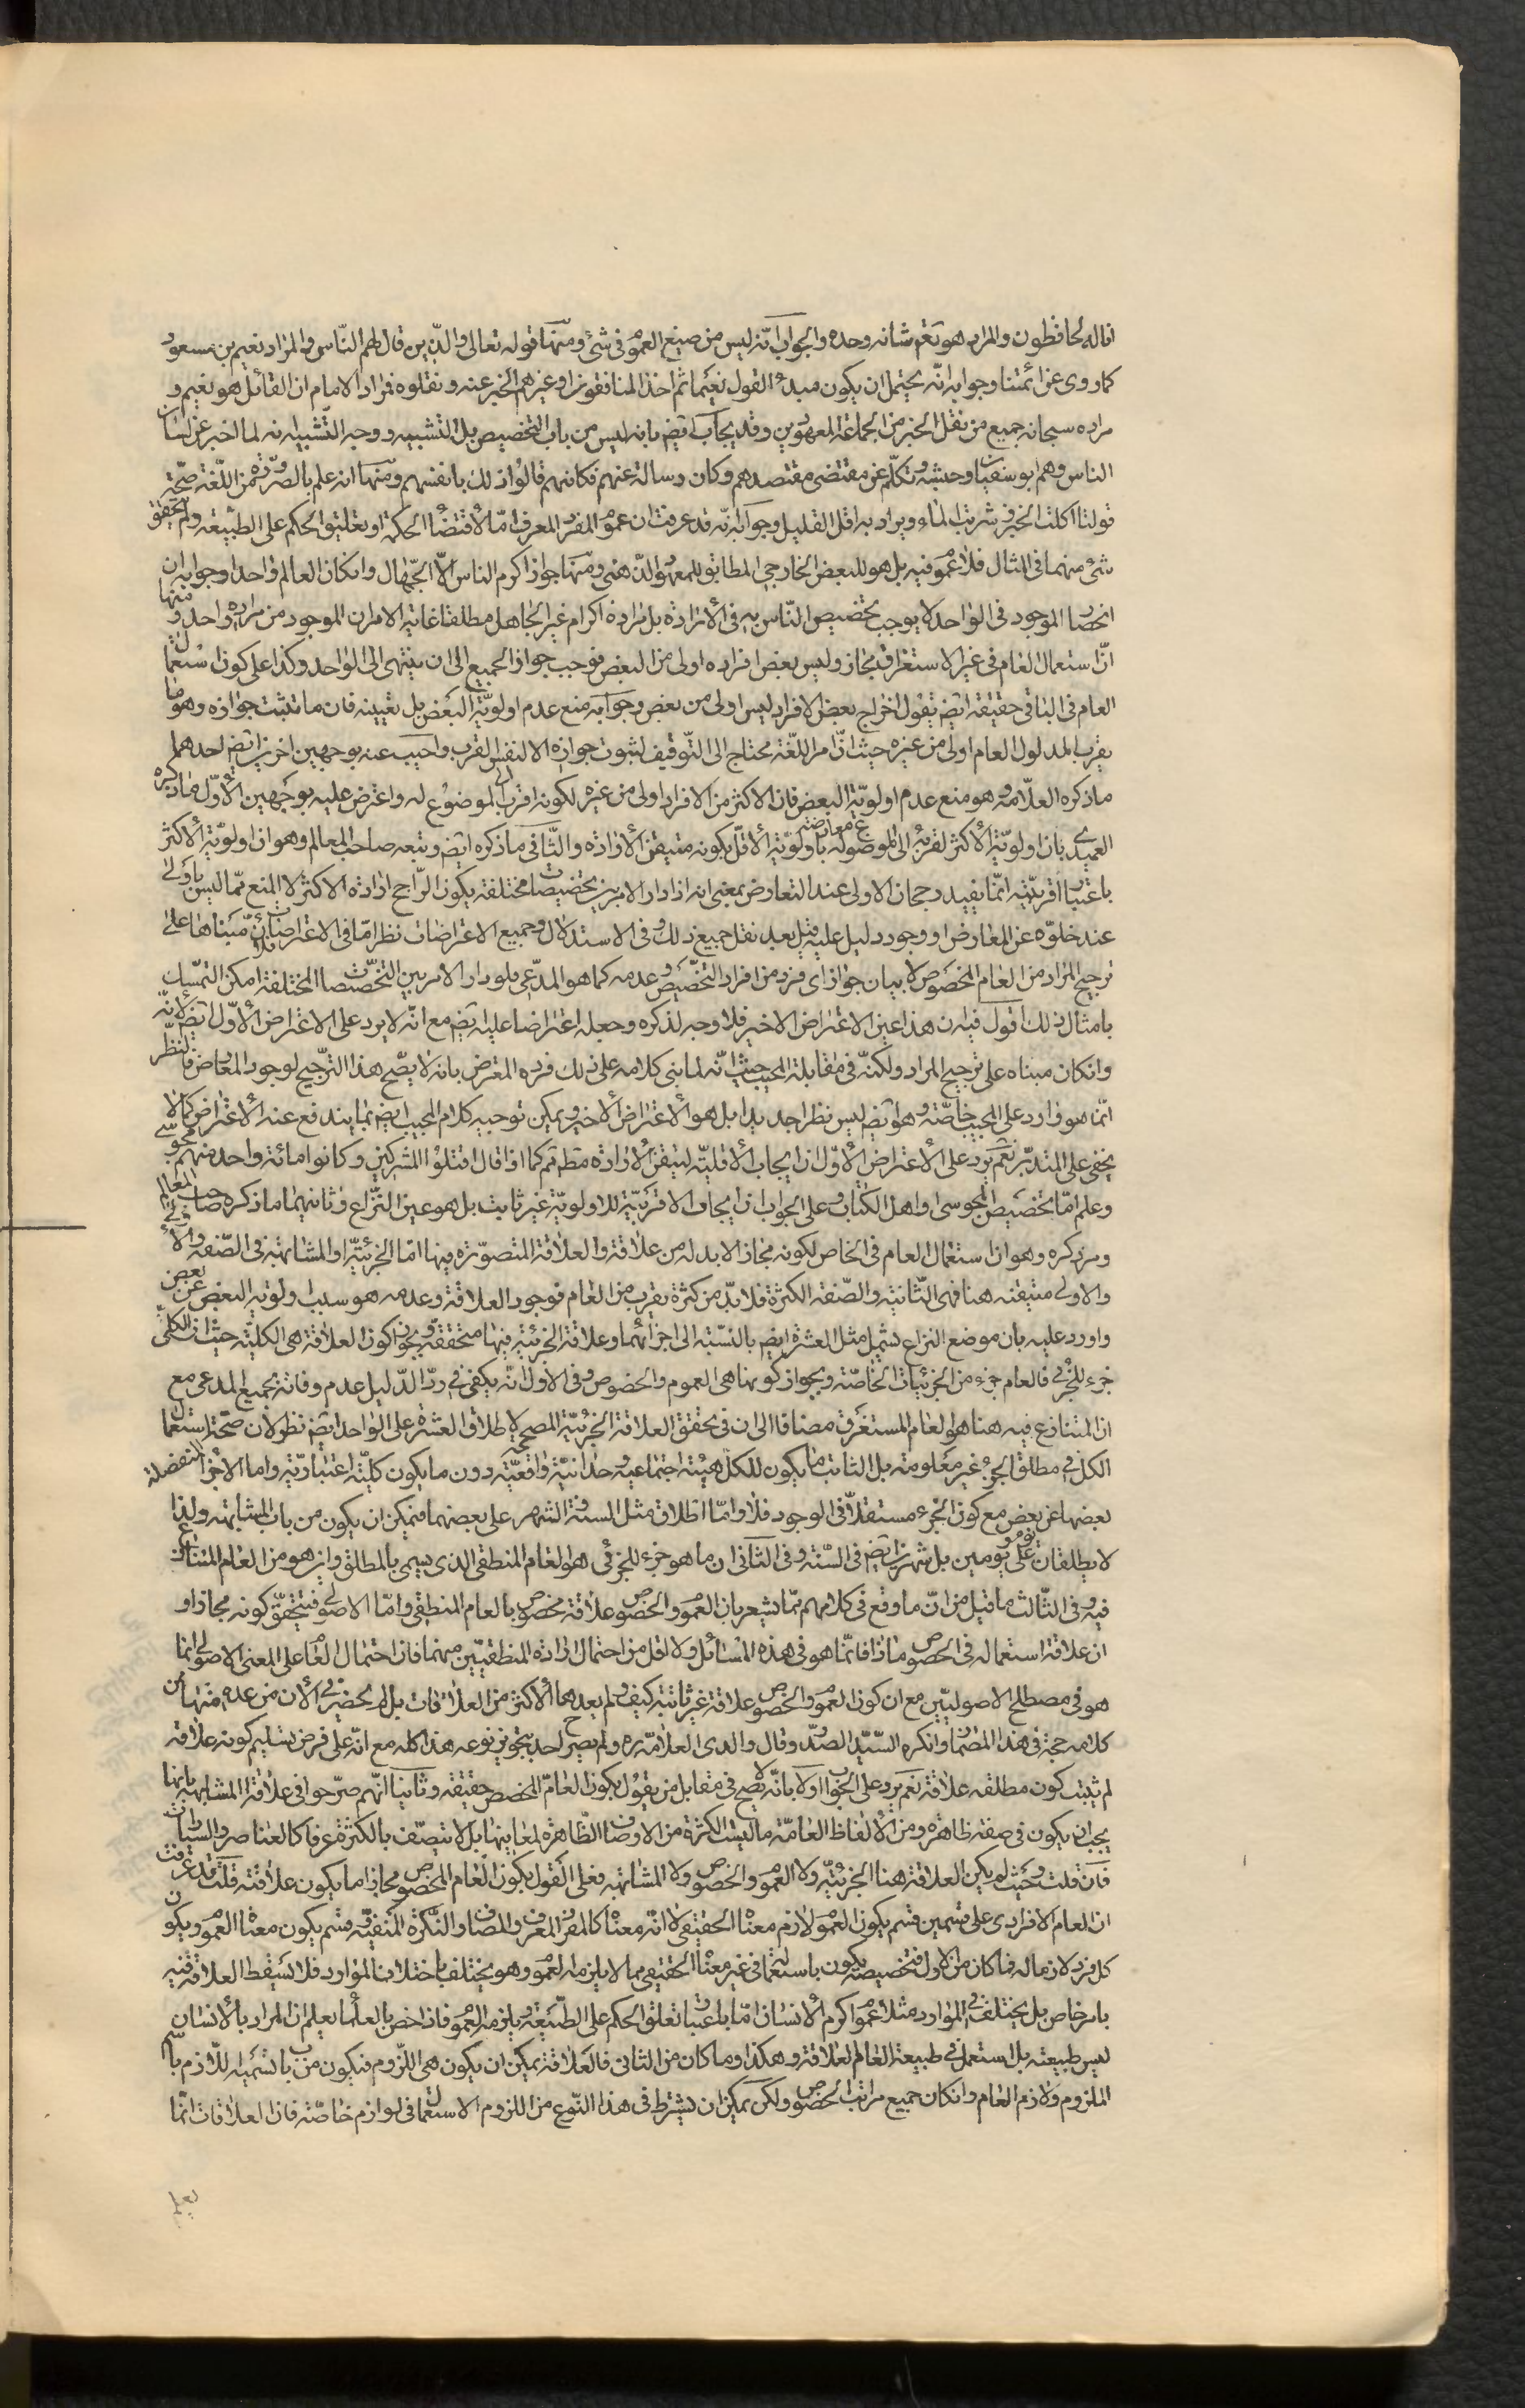 انا له لحافظون والمراد هو تعم شانه وحده والجواب انّه ليس من صيغ العموم فى شئ ومنها قوله تعالى والّذين قال لهم النّاس والمراد نعيم بن مسعود
كما روى عن ائمتنا وجوابه انّه يحتمل ان يكون مبدء القول نعيما ثم اخذ المنافقون او غيرهم الخبر عنه ونقلوه فمراد الامام ان القائل هو نعيم و
مراده سبحانه جميع من نقل الخبر من الجماعة المعهودين وقد يجاب ايضم بانه ليس من باب التخصيص بل التشبيه ووجه التّشبيه انه لما اخبر عن لسان
الناس وهم ابو سفيان وجيشه وتكلّم عن مقتضى مقتصدهم وكان رسالة عنهم فكانهم قالوا ذلك بانفسهم ومنها انه علم بالضرورة من اللّغة صحّة
قولنا اكلت الخبز وشربت الماء ويراد به اقل القليل وجوابه انّه قد عرفت ان عموم المفرد المعرف امّا لاقتضاء الحكمة او تعليق الحكم على الطبيعة ولم يتحقق
شئ منهما فى المثال فلا عموم فيه بل هو للبعض الخارجى المطابق للمعهود الذّهنى ومنها جواز اكرم الناس الاّ الجّهال وان كان العالم واحدا وجوابه ان
انحصار الموجود فى الواحد لا يوجب تخصيص النّاس به فى الارادة بل مراده اكرام غير الجاهل مطلقا غاية الامر ان الموجود من مراده واحد ومنها
انّ استعمال العام فى غير الاستغراق مجاز وليس بعض افراده اولى من البعض فوجب جواز الجميع الى ان ينتهى الى الواحد وكذا على كون استعمال
العام فى الباقى حقيقة ايضم يقول اخراج بعض الافراد ليس اولى من بعض وجوابه منع عدم اولويّة البعض بل تعيينه فان ما يثبت جوازه وهو ما
يقرب المدلول العام اولى من غيره حيث انّ امر اللّغة محتاج الى التّوقيف لثبوت جوازه الا لنفس القرب واجيب عنه بوجهين اخرين ايضم احدهما
ما ذكره العلاّمه وهو منع عدم اولويّة البعض فان الاكثر من الافراد اولى من غيره لكونه اقرب الى الموضوع له واعترض عليه بوجهين الاوّل ما ذكره
العميدى بان اولويّة الاكثر لقربه الى الموضوع له معارضته باولويّة الاقلّ بكونه متيقن الارادة والثّانى ما ذكره ايضم وتبعه صاحب المعالم وهو ان اولويّة الاكثر
باعتبار اقربيّته انّما يفيد رجحان الاولى عند التعارض بمعنى انه اذا دار الامر بين تخصيصات مختلفة يكون الرّاجح ارادة الاكثر لا المنع ممّا ليس باولى
عند خلوّه عن المعارض او وجود دليل عليه قيل بعد نقل جميع ذلك وفى الاستدلال وجميع الاعتراضات نظر امّا فى الاعتراضات فلانّ مبناها على
ترجيح المراد من العام المخصوص لا بيان جواز اى فرد من افراد التخصيص وعدمه كما هو المدّعى فلو دار الامر بين التخصيصات المختلفة امكن التمسّك
بامثال ذلك اقول فيه ان هذا عين الاعتراض الاخير فلا وجه لذكره وجعله اعتراضا عليه ايضم مع انّه لا يرد على الاعتراض الاوّل ايضم لانّه
وان كان مبناه على ترجيح المراد ولكنّه فى مقابلة المجيب حيث انّه لما بنى كلامه على ذلك فرده المعترض بانه لا يصّح هذا التّرجيح لوجود المعارض فالنّظر
انّما هو وارد على المجيب خاصّة وهو ايضم ليس نظرا جديدا بل هو الاعتراض الاخير ويمكن توجيه كلام المجيب ايضم بما يندفع عنه الاعتراض كما لا
يخفى على المتدبّر نعم يرد على الاعتراض الاوّل ان ايجاب الاقليّة ليتقن الارادة مطلقا كما اذا قال اقتلوا المشركين وكانوا مائة واحد منهم مجوسى
وعلم امّا بتخصيص المجوسى او اهل الكتاب وعلى الجواب ان ايجاب الاقربيّة للاولويّة غير ثابت بل هو عين النّزاع وثانيهما ما ذكره صاحب المعالم
ومر ذكره وهو ان استعمال العام فى الخاص لكونه مجازا لا بد له من علاقة والعلاقة المتصوّرة فيها امّا الجزئيّة او المشابهة فى الصّفة
والاولى منتفية هنا فهى الثّانية والصّفة الكثرة فلا بدّ من كثرة يقرب من العام فوجود العلاقة وعدمه هو سبب اولويّة البعض عن بعض
واورد عليه بان موضع النزاع يشمل مثل العشرة ايضم بالنسّبة الى اجزائها وعلاقة الجزئية فيها متحققة وبجواز كون العلاقة هى الكليّة حيث ان الكلّى
جزء للجزئى فالعام جزء من الجزئيات الخاصّة وبجواز كونها هى العموم والخصوص وفى الاول انّه يكفى فى ردّ الدّليل عدم وفائه بجميع المدعى مع
ان المتنازع فيه هنا هو العام المستغرق مضافا الى ان فى تحقق العلاقة الجزئيّة المصححة لاطلاق العشرة على الواحد ايضم نظر لان صحّة استعمال
الكل فى مطلق الجزء غير معلومة بل الثابت ما يكون للكل هيئة اجتماعيه وحدانيّة واقعيّة دون ما يكون كليّته اعتباريّة واما الاجزاء المنفصلة
بعضها عن بعض مع كون الجزء مستقلاّ فى الوجود فلا وامّا اطلاق مثل السنة والشهر على بعضهما فيمكن ان يكون من باب المشابهة ولذا
لا يطلقان على يوم ويومين بل شهرين ايضم فى السّنة وفى الثّانى ان ما هو جزء للجزئى هو العام المنطقى الذى يسمى بالمطلق واين هو من العام المتنازع
فيه وفى الثّالث ما قيل من انّ ما وقع فى كلامهم ممّا يشعر بان العموم والخصوص علاقة مخصوص بالعام المنطقى وامّا الاصولى فيتحقّق كونه مجازا و
ان علاقة استعماله فى الخصوص ماذا فانّما هو فى هذه المسائل ولا اقل من احتمال ارادة المنطقيّين منهما فان احتمال العام على المعنى الاصولى انما
هو فى مصطلح الاصوليّين مع ان كون العموم والخصوص علاقة غير ثابتة كيف ولم يعدهما الاكثر من العلاقات بل لم يحضرنى الان من عدهما منها من
كلامه حجة فى هذا المضمار وانكره السّيّد الصدر وقال والدى العلامّة ره ولم يصرح احد بتجويز نوعه هذا كله مع انّه على فرض تسليم كونه علاقة
لم يثبت كون مطلقه علاقة نعم يرد على الجواب اولا بانّه لا يصح فى مقابل من يقول بكون العامّ المخصص حقيقة وثانيا انّهم صرّحوا فى علاقة المشابهة بانها
يجب ان يكون فى صفة ظاهرة ومن الالفاظ العامّة ما ليست الكثرة من الاوصاف الظّاهرة لمعانيها بل لا يتصّف بالكثرة عرفا كالعناصر والسيّارات
فان قلت وحيث لم يكن العلاقة هنا الجزئيّة ولا العموم والخصوص ولا المشابهة فعلى القول بكون العام المخصوص مجازا ما يكون علاقته قلت قد عرفت
ان العام الافرادى على قسمين قسم يكون العموم لازم معناه الحقيقى لا انّه معناه كالمفرد المعرف والمضاف والنّكرة المنفيّة وقسم يكون معناه العموم ويكون
كل فرد لازما له فما كان من الاول فتخصيصه يكون باستعماله فى غير معناه الحقيقى مما لا يلزمه العموم وهو يختلف باختلاف الموارد فلا تسقط العلاقة فيه
بامر خاص بل يختلف فى الموارد مثلا عموم اكرم الانسان امّا باعتبار تعلق الحكم على الطّبيعة ويلزمه العموم فاذا خص بالعلماء يعلم ان المراد بالانسان
ليس طبيعته بل استعمل فى طبيعة العالم لعلاقة وهكذا وما كان من الثانى فالعلاقة يمكن ان يكون هى اللّزوم فيكون من باب تسمية اللّازم باسم
الملزوم ولازم العام وان كان جميع مراتب الخصوص ولكن يمكن ان يشترط فى هذا النّوع من اللزوم الاستعمال فى لوازم خاصّة فان العلاقات انّما